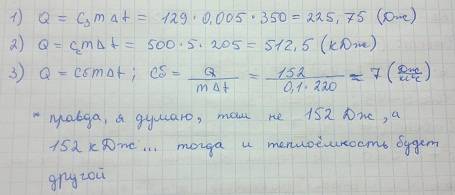 1) Q = c₃ m Δt = 129 · 0,005 · 350 = 225,75 (Дж)
2) Q = c₂mΔt = 500 · 5 · 205 = 512,5 (кДж)
3) Q = cбmΔt ; cб = Q/mΔt = 152/0,1·220 ≈ 7 (Дж/кг°C)
* правда, я думаю, там не 152 Дж, а
152 кДж... тогда и теплоёмкость будет
другой